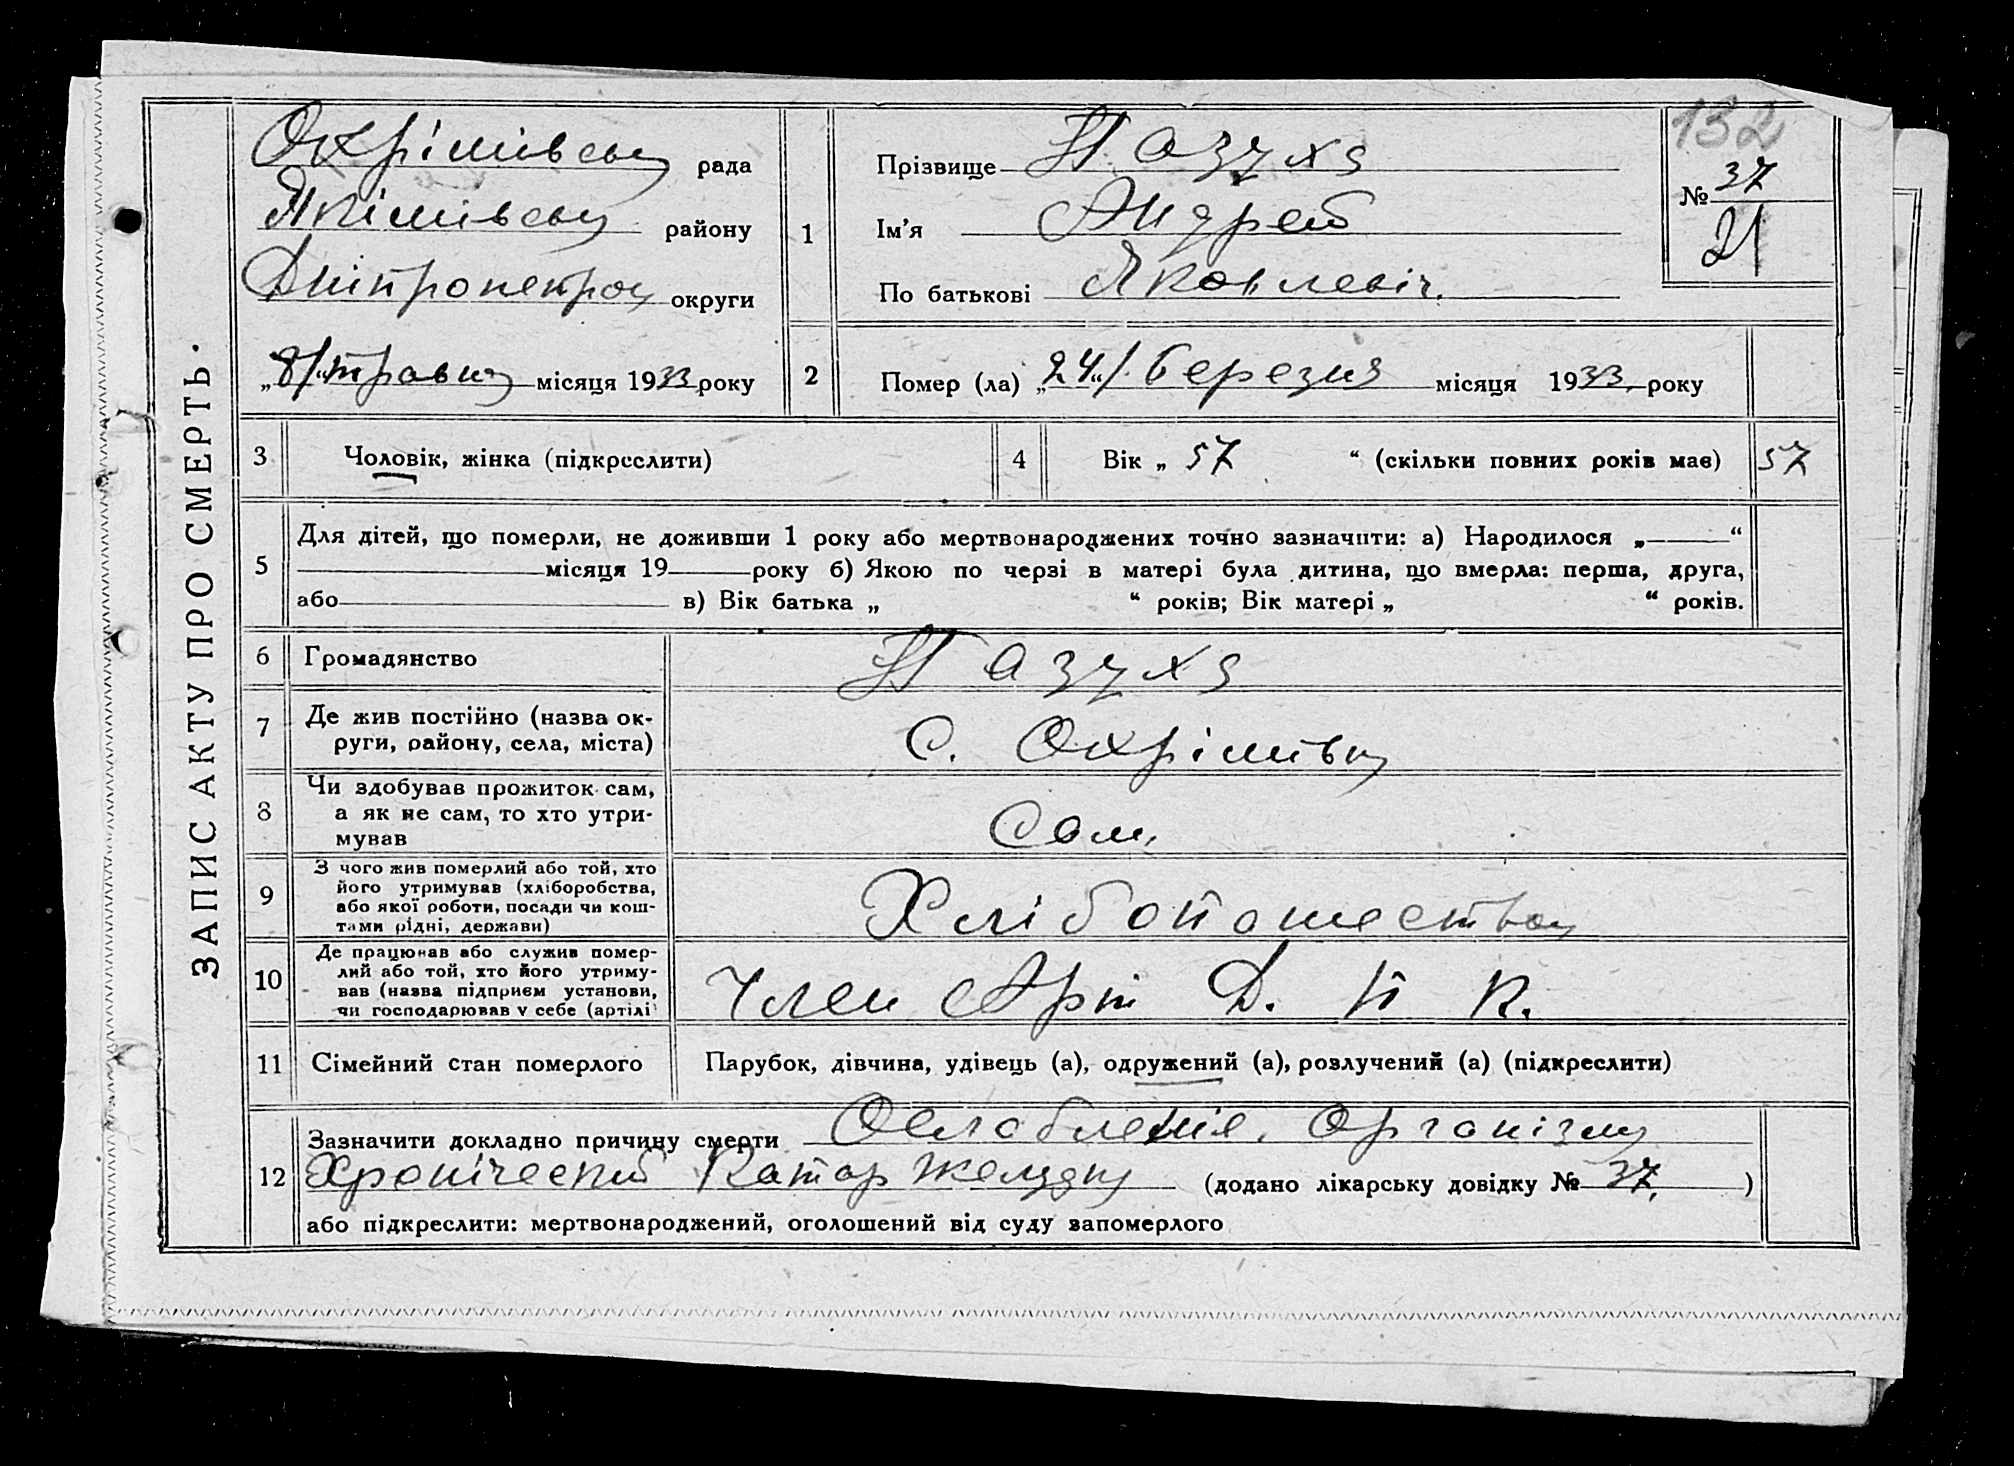 ЗАПИС АКТУ ПРО СМЕРТЬ.
Охрімівськ рада
Якімівськ району
Дніпропетроц округи
„8/“ травня місяця 1933 року
132
№ 37
21
1
Прізвище Пазуха
Ім'я Андрей
По батькові Яковлевіч.
2 Помер (ла) „24“/ березня місяця 1933 року
3 Чоловік, жінка (підкреслити)
4 Вік „ 57 “ (скільки повних років має) 57
5 Для дітей, що померли, не доживши 1 року або мертвонароджених точно зазначити: а) Народилося „ “
місяця 19 року б) Якою по черзі в матері була дитина, що вмерла: перша, друга,
або в) Вік батька „ “ років; Вік матері „ “ років.
6 Громадянство Пазуха
7 Де жив постійно (назва ок-
руги, району, села, міста) С. Охрімівка
8 Чи здобував прожиток сам,
а як не сам, то хто утри-
мував Сам,
9 З чого жив померлий або той, хто
його утримував (хліборобства,
або якої роботи, посади чи кош-
тами рідні, держави) Хлібопашество
10 Де працював або служив помер-
лий або той, хто його утриму-
вав (назва підприєм установи,
чи господарював у себе (артілі) Член Арт Д. Н К.
11 Сімейний стан померлого Парубок, дівчина, удівець (а), одружений (а), розлучений (а) (підкреслити)
12 Зазначити докладно причину смерти Ослабленіе. Організму
Хроніческий Катар Желудку (додано лікарську довідку № 37. )
або підкреслити: мертвонароджений, оголошений від суду запомерлого